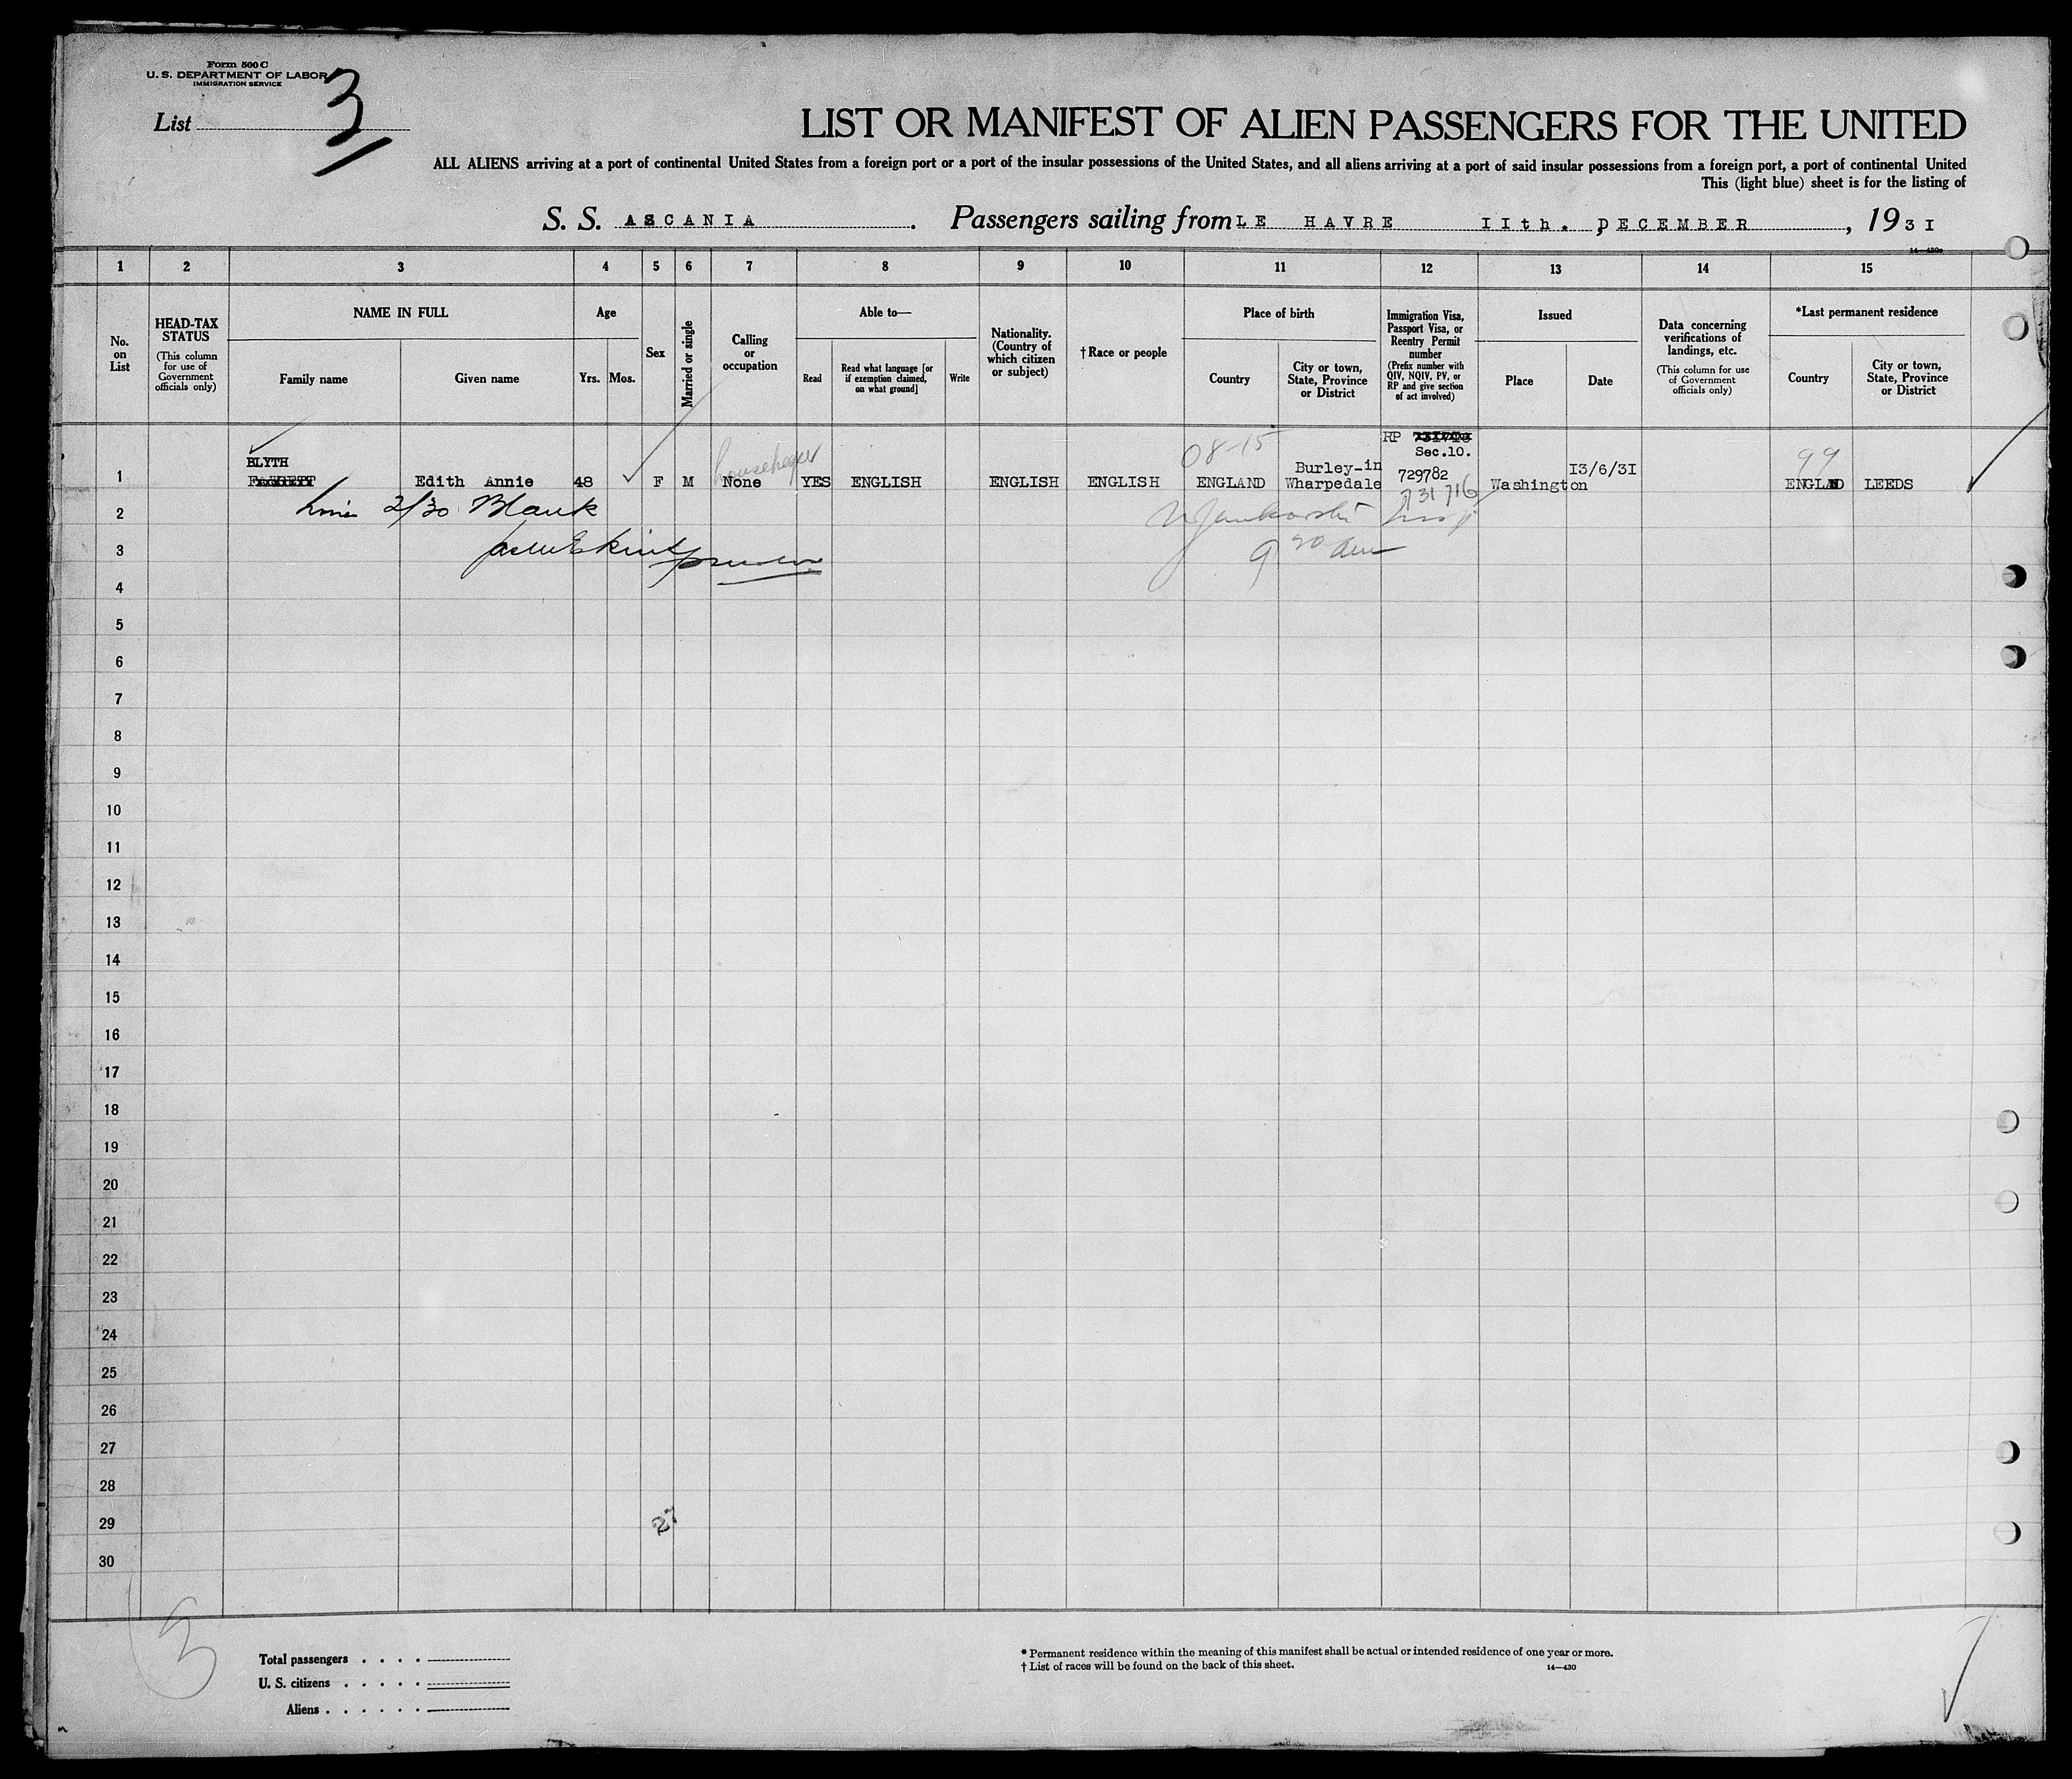 Form 500 C
U. S. DEPARTMENT OF LABOR
IMMIGRATION SERVICE
List 3
LIST OR MANIFEST OF ALIEN PASSENGERS FOR THE UNITED
ALL ALIENS arriving at a port of continental United States from a foreign port or a port of the insular possessions of the United States, and all aliens arriving at a port of said insular possessions from a foreign port, a port of continental United
This (light blue) sheet is for the listing of
S. S. ASCANIA . Passengers sailing from LE HAVRE IIth. DECEMBER , 193I
14—430a
1 2 3 4 5 6 7 8 9 10 11 12 13 14 15
No. on List
HEAD-TAX STATUS (This column for use of Government officials only)
NAME IN FULL
Family name
Given name
Age
Yrs. Mos.
Sex
Married or single
Calling or occupation
Able to—
Read
Read what language [or if exemption claimed, on what ground]
Write
Nationality. (Country of which citizen or subject)
† Race or people
Place of birth
Country
City or town, State, Province or District
Immigration Visa, Passport Visa, or Reentry Permit number (Prefix number with QIV, NQIV, PV, or RP and give section of act involved)
Issued
Place
Date
Data concerning verifications of landings, etc. (This column for use of Government officials only)
*Last permanent residence
Country
City or town, State, Province or District
housekeeper 08-15 RP Sec.10. 99
BLYTH Burley-in 729782 I3/6/3I
1 Edith Annie 48 F M None YES ENGLISH ENGLISH ENGLISH ENGLAND Wharpedale 731716 Washington ENGLND LEEDS
2 2/30 Blank
3 9 30 am
4
5
6
7
8
9
10
11
12
13
14
15
16
17
18
19
20
21
22
23
24
25
26
27
28
29 27
30
3
Total passengers . . . .
U. S. citizens . . . . .
Aliens . . . . . .
* Permanent residence within the meaning of this manifest shall be actual or intended residence of one year or more.
† List of races will be found on the back of this sheet. 14—430